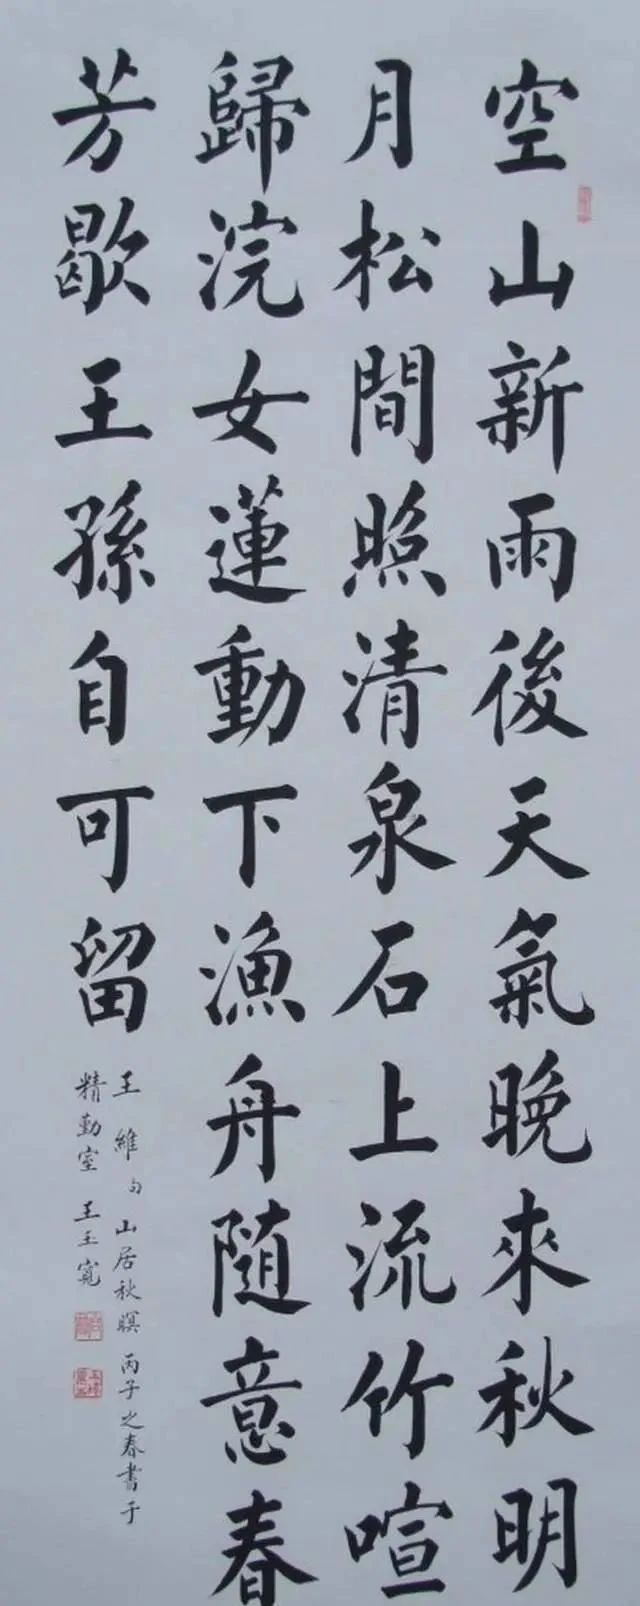 空山新雨後天氣晚來秋明
月松間照清泉石上流竹喧
歸浣女蓮動下漁舟隨意春
芳歇王孫自可留
王維句山居秋暝丙子之春書于
精勤室王玉寬